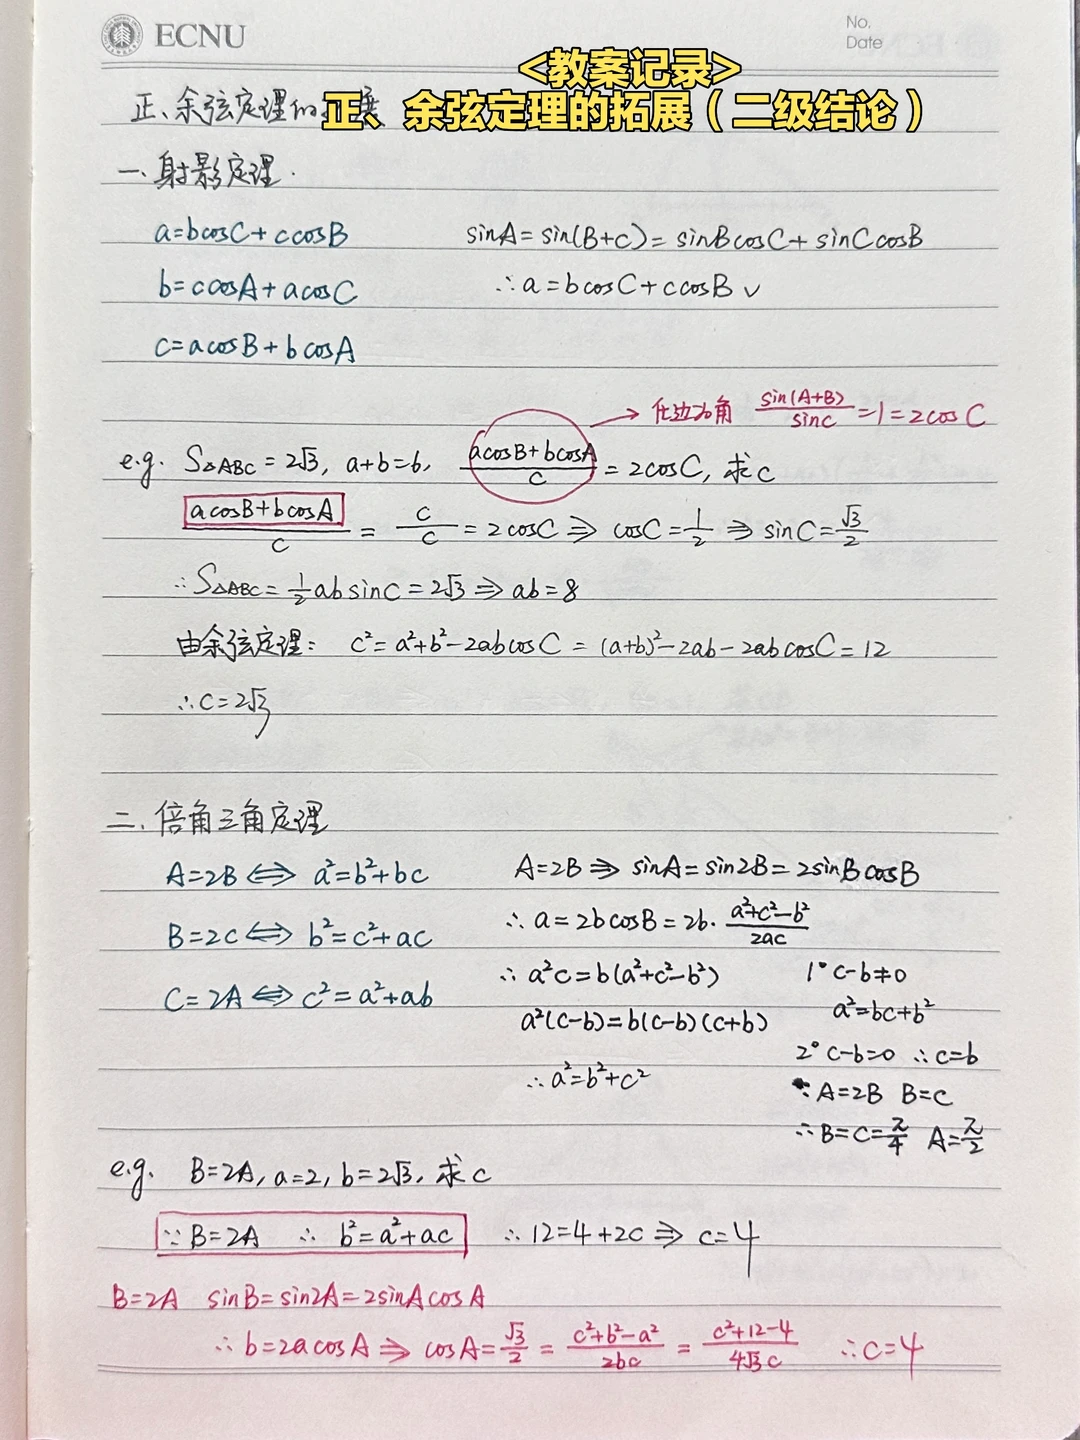 ECNU
No.
Date
<教案记录>
正、余弦定理的拓展（二级结论）
正、余弦定理的
一、射影定理.
a=bcosC+ccosB
sinA=sin(B+C)=sinBcosC+sinCcosB
b=ccosA+acosC
∴a=bcosC+ccosB✓
c=acosB+bcosA
→ 化边为角 sin(A+B)/sinC=1=2cosC
e.g. S△ABC=2√3, a+b=6, (acosB+bcosA)/c=2cosC, 求c
(acosB+bcosA)/c = c/c = 2cosC ⇒ cosC=1/2 ⇒ sinC=√3/2
∴S△ABC=1/2absinC=2√3⇒ab=8
由余弦定理: c²=a²+b²-2abcosC=(a+b)²-2ab-2abcosC=12
∴c=2√3
二、倍角三角定理
A=2B⇔a²=b²+bc
A=2B⇒sinA=sin2B=2sinBcosB
B=2C⇔b²=c²+ac
∴a=2bcosB=2b·(a²+c²-b²)/2ac
C=2A⇔c²=a²+ab
∴a²c=b(a²+c²-b²)
a²(c-b)=b(c-b)(c+b)
∴a²=b²+c²
1°c-b≠0
a²=bc+b²
2°c-b=0 ∴c=b
∵A=2B B=C
∴B=C=π/4 A=π/2
e.g. B=2A, a=2, b=2√3, 求c
∵B=2A ∴b²=a²+ac ∴12=4+2c⇒c=4
B=2A sinB=sin2A=2sinAcosA
∴b=2acosA⇒cosA=√3/2=(c²+b²-a²)/2bc=(c²+12-4)/4√3c ∴c=4